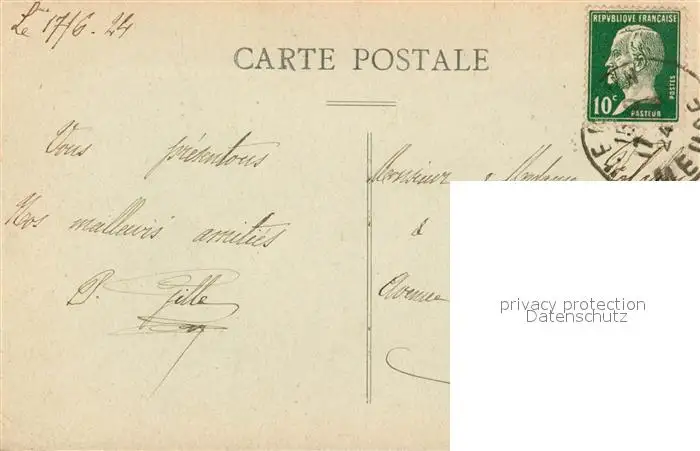 Le 17/6. 24
CARTE POSTALE
REPUBLIQUE FRANÇAISE
10c
POSTES
PASTEUR
17
24
MEUSE
Vous présentons
Nos meilleurs amitiés
P. Gille
Monsieur & Madame
à
privacy protection
Datenschutz